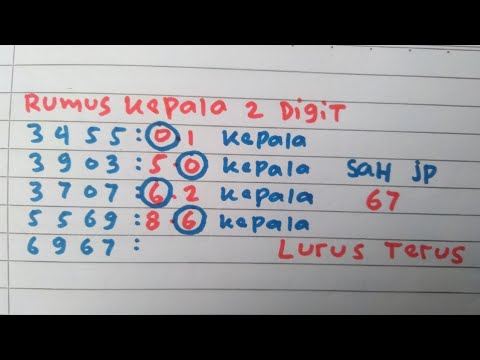 Rumus Kepala 2 Digit
3455:0.1 Kepala
3903:5.0 Kepala SaH JP
3707:6.2 Kepala 67
5569:8.6 Kepala
6967: Lurus Terus